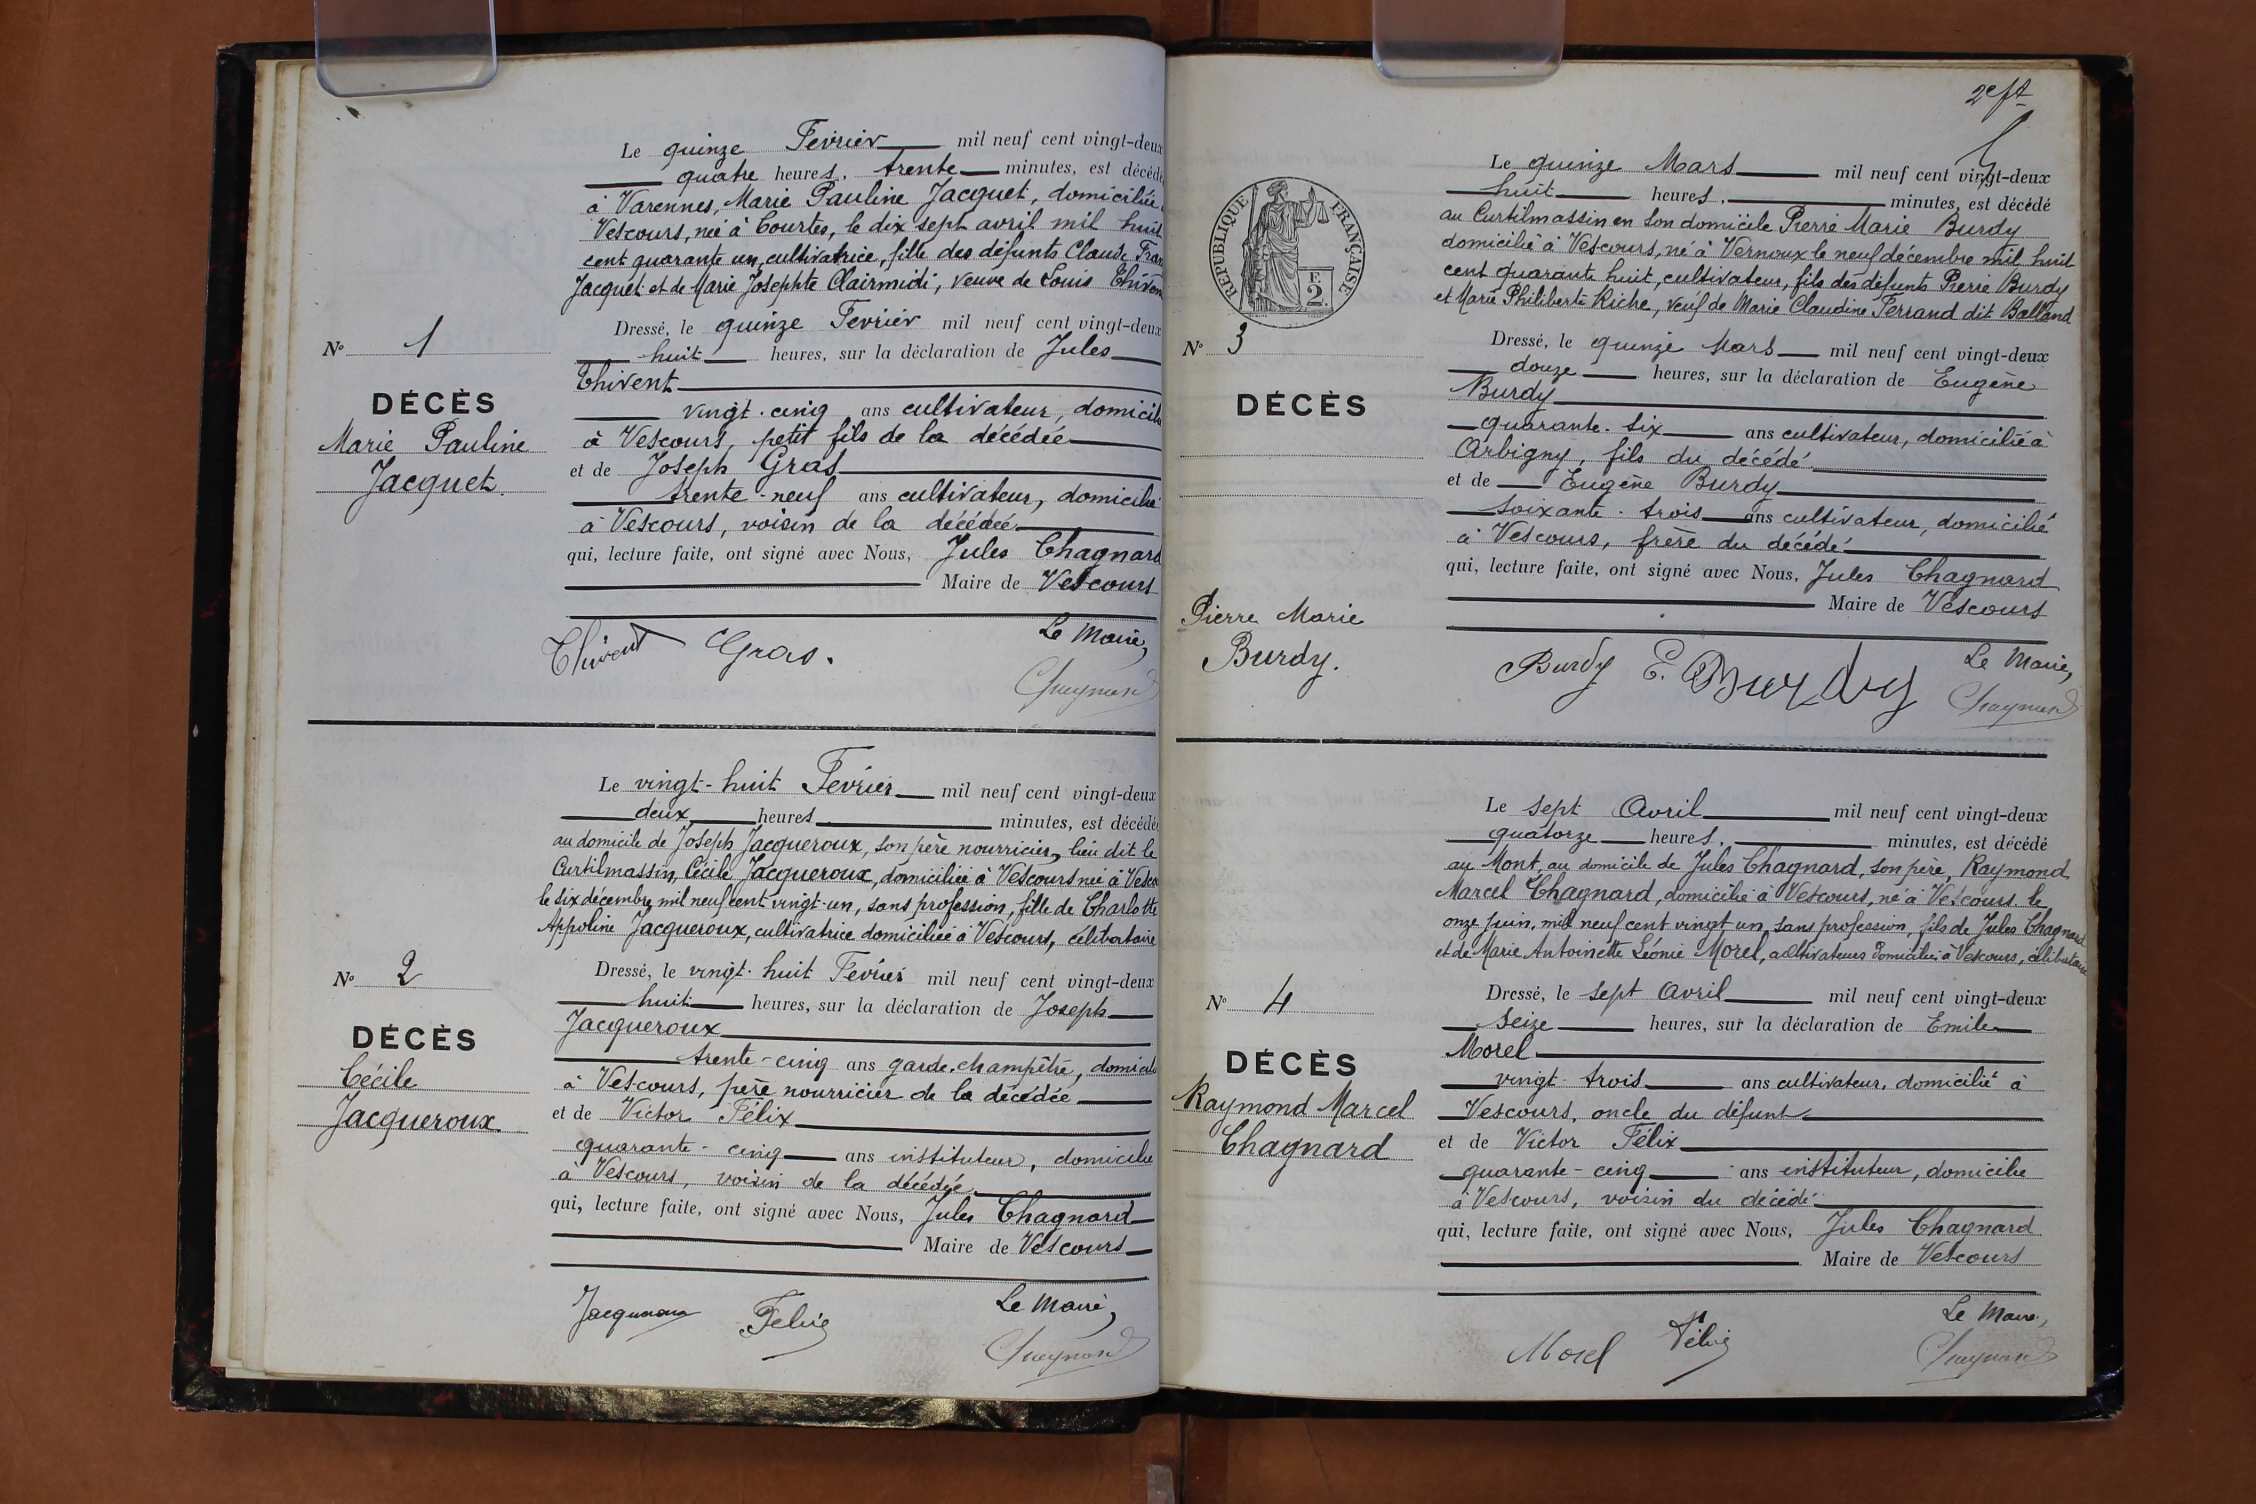 Le quinze Fevrier mil neuf cent vingt-deux
quatre heures. trente minutes, est décédé
à Varennes, Marie Pauline Jacquet, domiciliée
Vescours, née à Courtes, le dix sept avril mil huit
cent quarante un, cultivatrice, fille des défunts Claude Fran
Jacquet et de Marie Josephte Clairmidi, veuve de Louis Thivent
Dressé, le quinze Fevrier mil neuf cent vingt-deux
huit heures, sur la déclaration de Jules
Thivent
vingt-cinq ans cultivateur, domicilié
à Vescours, petit fils de la décédée
et de Joseph Gras
trente-neuf ans cultivateur, domicilié
à Vescours, voisin de la décédée
qui, lecture faite, ont signé avec Nous, Jules Chagnard
Maire de Vescours
Nº 1
DÉCÈS
Marie Pauline
Jacquet.
Thivent Gras. Le Maire,
Chagnard
Le vingt-huit Février mil neuf cent vingt-deux
deux heures minutes, est décédée
au domicile de Joseph Jacqueroux, son père nourricier, lieu dit le
Curtilmassin, Cécile Jacqueroux, domiciliée à Vescours née à Vesco
le six décembre mil neuf cent vingt-un, sans profession, fille de Charlotte
Appoline Jacqueroux, cultivatrice domiciliée à Vescours, célibataire
Dressé, le vingt-huit Fevrier mil neuf cent vingt-deux
huit heures, sur la déclaration de Joseph
Jacqueroux
trente-cinq ans garde-champêtre, domicilié
à Vescours, père nourricier de la décédée
et de Victor Félix
quarante-cinq ans instituteur, domicilié
à Vescours, voisin de la décédée
qui, lecture faite, ont signé avec Nous, Jules Chagnard
Maire de Vescours
Nº 2
DÉCÈS
Cécile
Jacqueroux.
Jacqueroux Felix Le Maire,
Chagnard
2e ft
RÉPUBLIQUE FRANÇAISE
F.
2
Le quinze Mars mil neuf cent vingt-deux
huit heures. minutes, est décédé
au Curtilmassin en son domicile Pierre Marie Burdy
domicilié à Vescours, né à Vernoux le neuf décembre mil huit
cent quarante huit, cultivateur, fils des défunts Pierre Burdy
et Marie Philiberte Riche, veuf de Marie Claudine Perrand dit Balland
Dressé, le quinze Mars mil neuf cent vingt-deux
douze heures, sur la déclaration de Eugène
Burdy
quarante-six ans cultivateur, domicilié à
Arbigny, fils du décédé
et de Eugène Burdy
soixante-trois ans cultivateur, domicilié
à Vescours, frère du décédé
qui, lecture faite, ont signé avec Nous, Jules Chagnard
Maire de Vescours
Nº 3
DÉCÈS
Pierre Marie
Burdy.
Burdy E. Burdy Le Maire,
Chagnard
Le sept Avril mil neuf cent vingt-deux
quatorze heures. minutes, est décédé
au Mont, au domicile de Jules Chagnard, son père, Raymond
Marcel Chagnard, domicilié à Vescours, né à Vescours le
onze juin, mil neuf cent vingt un, sans profession, fils de Jules Chagnard
et de Marie Antoinette Léonie Morel, cultivateurs domiciliés à Vescours, célibataire
Dressé, le sept Avril mil neuf cent vingt-deux
seize heures, sur la déclaration de Emile
Morel
vingt-trois ans cultivateur, domicilié à
Vescours, oncle du défunt
et de Victor Félix
quarante-cinq ans instituteur, domicilié
à Vescours, voisin du décédé
qui, lecture faite, ont signé avec Nous, Jules Chagnard
Maire de Vescours
Nº 4
DÉCÈS
Raymond Marcel
Chagnard
Morel Félix Le Maire,
Chagnard